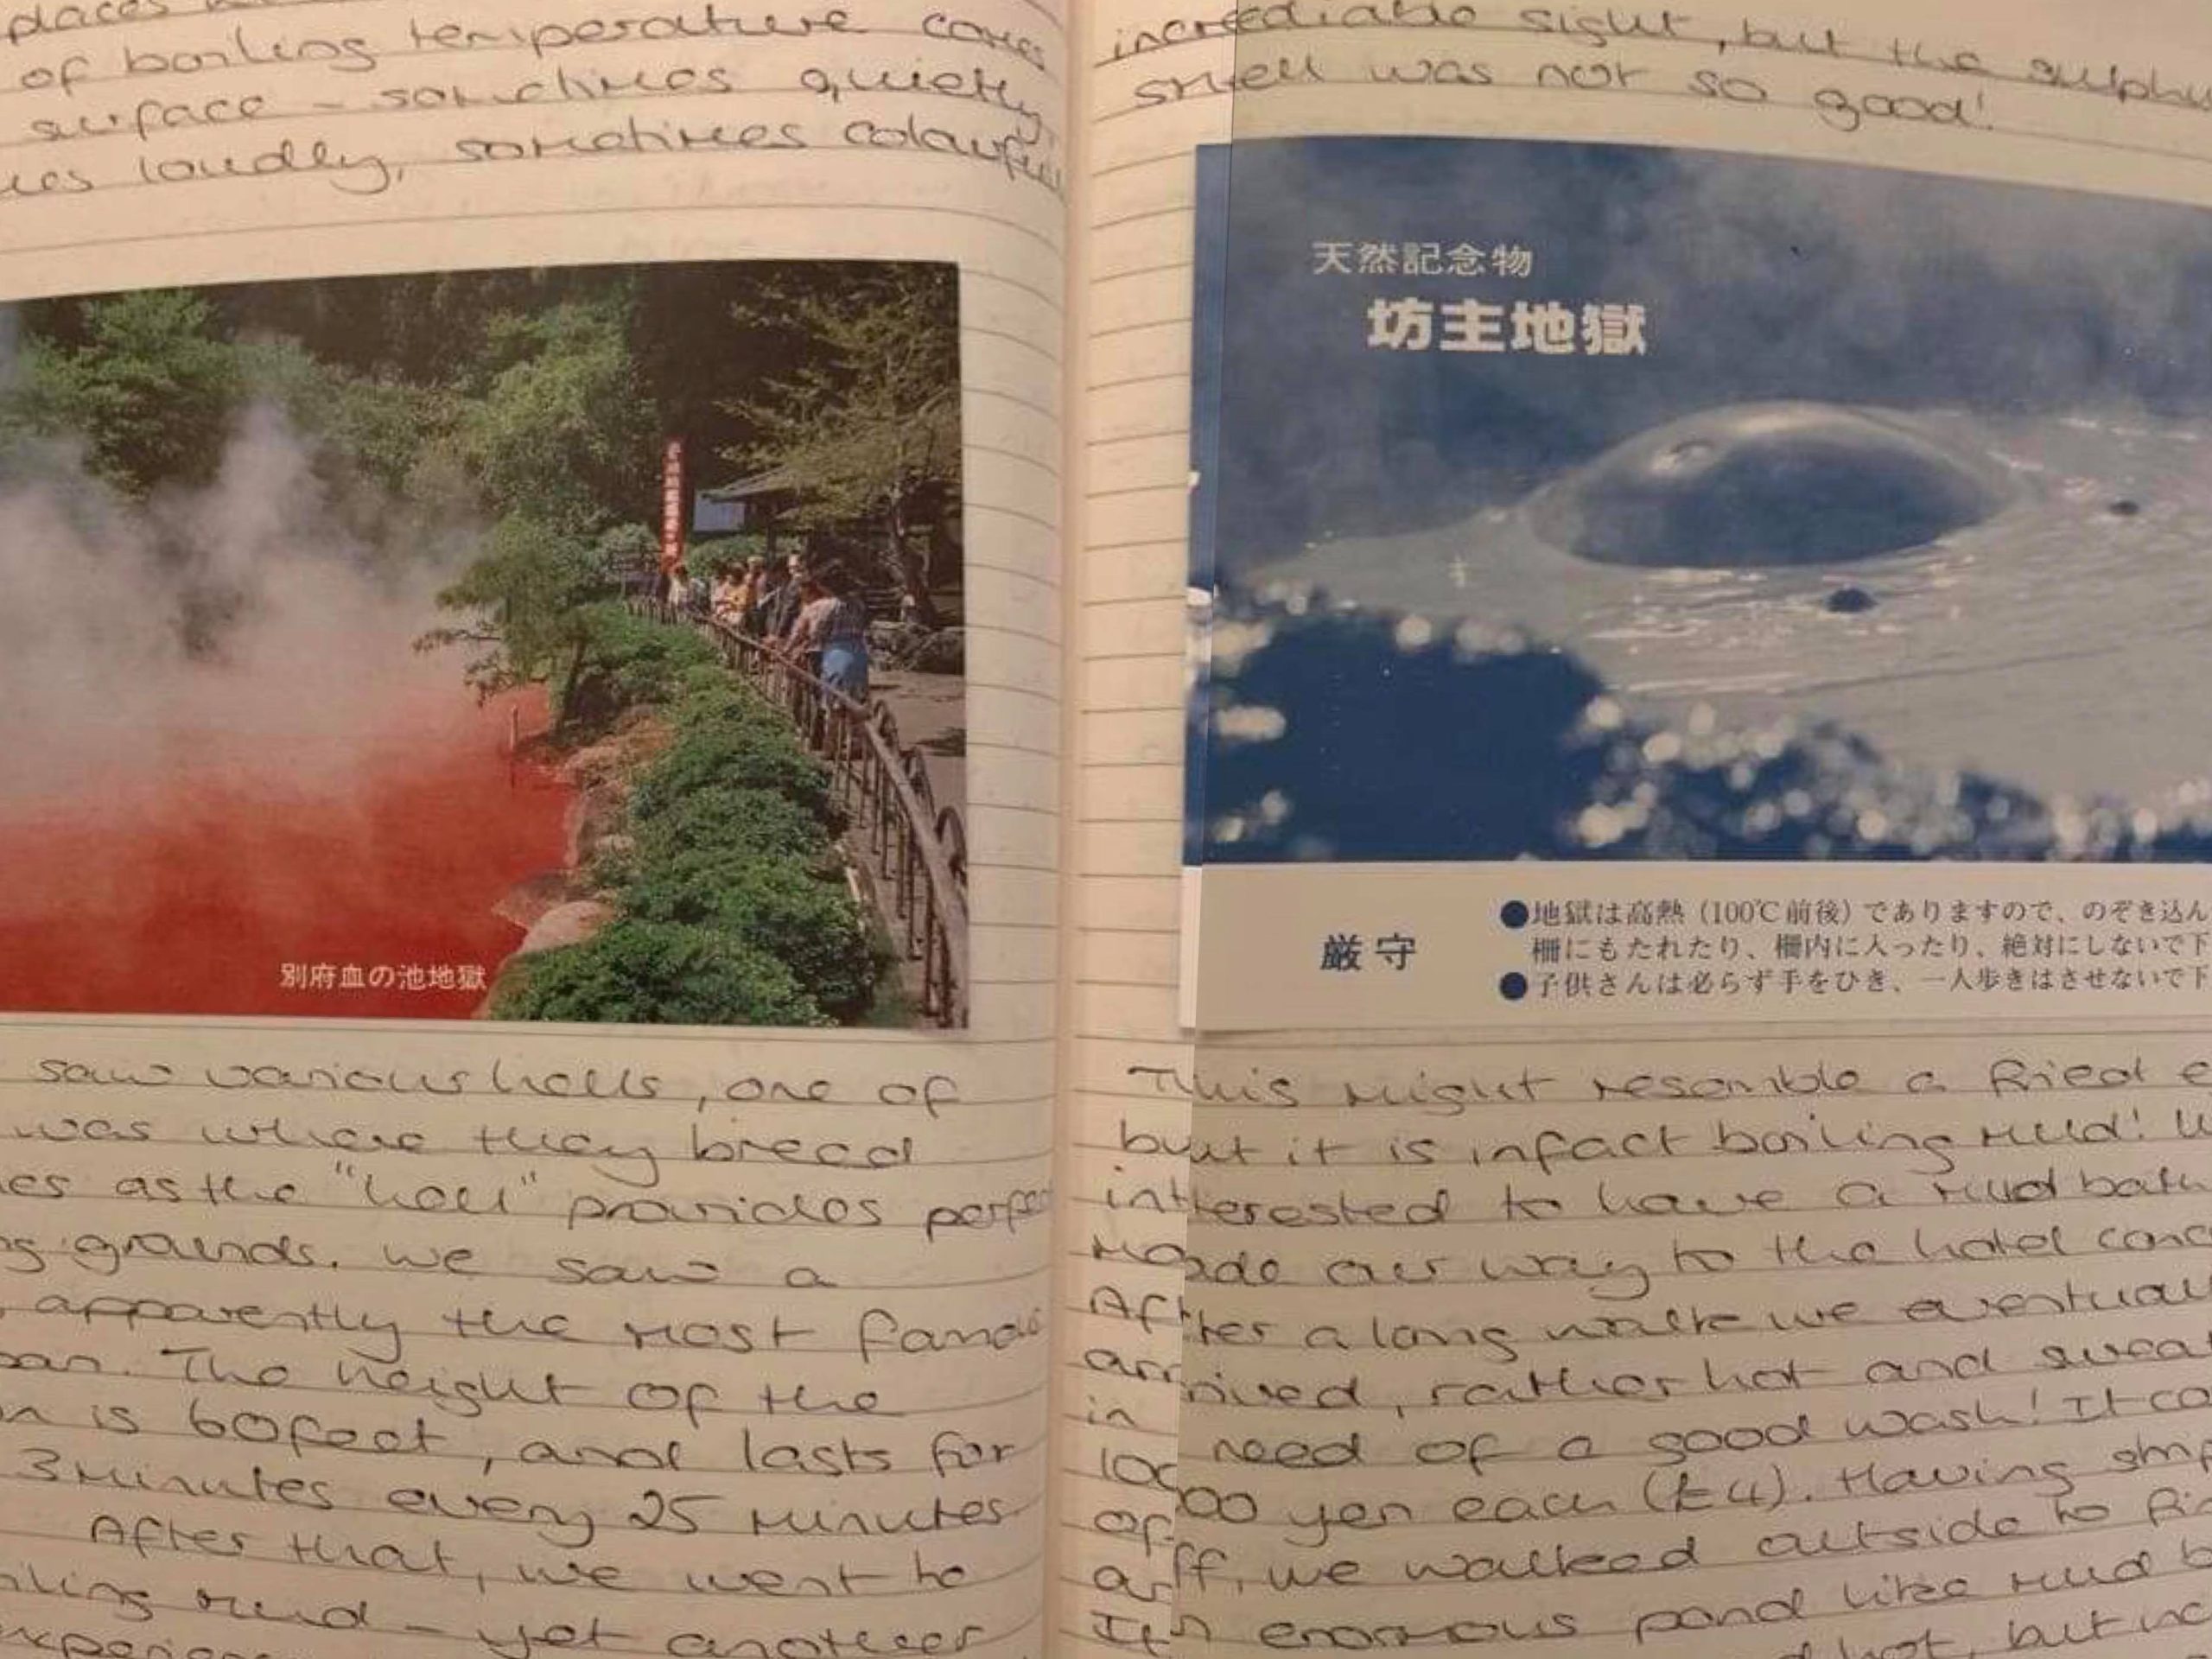 places
of boiling temperature comes
surface - sometimes quietly,
loudly, sometimes colourful
別府血の池地獄
saw various hells, one of
was where they breed
as the "hell" provides perfect
grounds. We saw a
apparently the most famous
The height of the
is 60feet, and lasts for
3 minutes every 25 minutes
After that, we went to
mud - yet another
incrediable sight, but the sulphu
smell was not so good!
天然記念物
坊主地獄
厳守
●地獄は高熱（100℃前後）でありますので、のぞき込ん
柵にもたれたり、柵内に入ったり、絶対にしないで下
●子供さんは必らず手をひき、一人歩きはさせないで下
This might resemble a fried e
but it is infact boiling mud! W
interested to have a mud bath
made our way to the hotel conc
After a long walk we eventual
arrived, rather hot and sweat
in need of a good wash! It co
1000 yen each (£4). Having
off, we walked outside to fi
an enormous pond like mud b
It hot, but